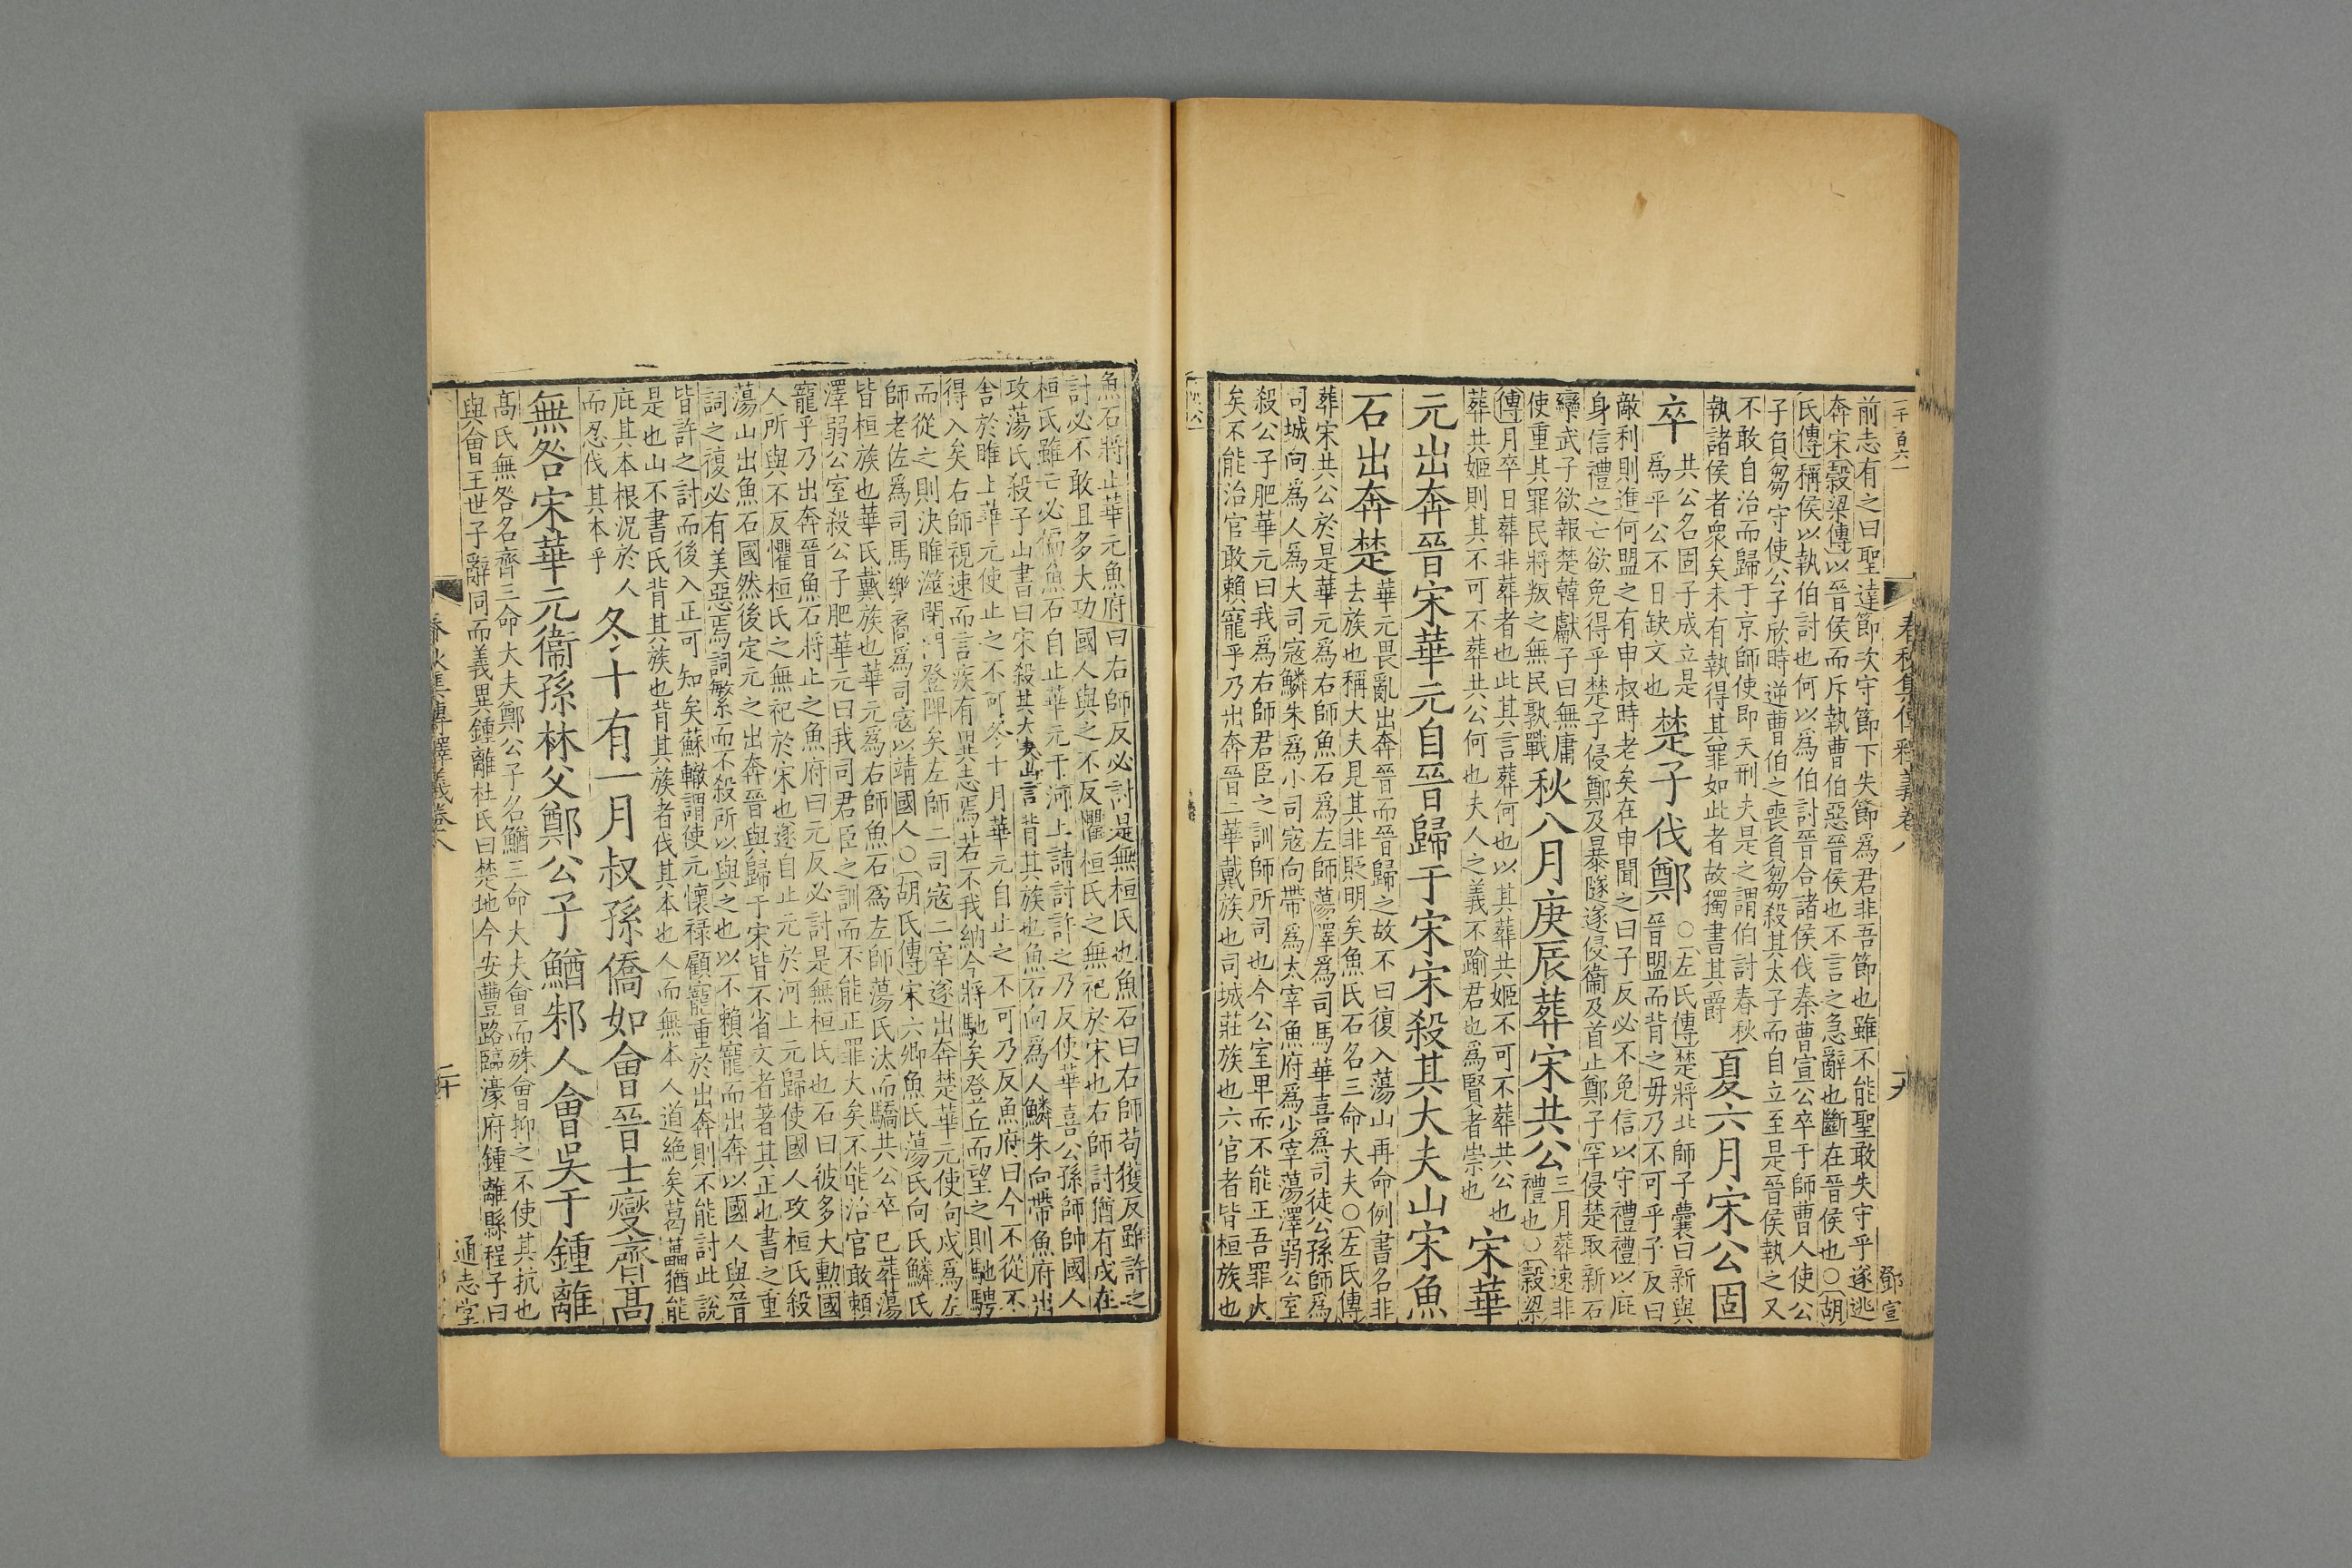 一千百六一
春秋集傳釋義卷八
十九
鄧宣
前志有之曰聖達節次守節下失節爲君非吾節也雖不能聖敢失守乎遂逃
奔宋穀梁傳以晉侯而斥執曹伯惡晉侯也不言之急辭也斷在晉侯也○胡
氏傳稱侯以執伯討也何以爲伯討晉合諸侯伐秦曹宣公卒于師曹人使公
子負芻守使公子欣時逆曹伯之喪負芻殺其太子而自立至是晉侯執之又
不敢自治而歸于京師使即天刑夫是之謂伯討春秋
執諸侯者衆矣未有執得其罪如此者故獨書其爵
夏六月宋公固
卒
共公名固子成立是
爲平公不日缺文也
楚子伐鄭
○左氏傳楚將北師子囊曰新與
晉盟而背之毋乃不可乎子反曰
敵利則進何盟之有申叔時老矣在申聞之曰子反必不免信以守禮禮以庇
身信禮之亡欲免得乎楚子侵鄭及暴隧遂侵衞及首止鄭子罕侵楚取新石
欒武子欲報楚韓獻子曰無庸
使重其罪民將叛之無民孰戰
秋八月庚辰葬宋共公
三月葬速非
禮也○穀梁
傳月卒日葬非葬者也此其言葬何也以其葬共姬不可不葬共公也
葬共姬則其不可不葬共公何也夫人之義不踰君也爲賢者崇也
宋華
元出奔晉宋華元自晉歸于宋宋殺其大夫山宋魚
石出奔楚
華元畏亂出奔晉而晉歸之故不曰復入蕩山再命例書名非
去族也稱大夫見其非貶明矣魚氏石名三命大夫○左氏傳
葬宋共公於是華元爲右師魚石爲左師蕩澤爲司馬華喜爲司徒公孫師爲
司城向爲人爲大司寇鱗朱爲小司寇向帶爲太宰魚府爲少宰蕩澤弱公室
殺公子肥華元曰我爲右師君臣之訓師所司也今公室卑而不能正吾罪大
矣不能治官敢賴寵乎乃出奔晉二華戴族也司城莊族也六官者皆桓族也
魚石將止華元魚府曰右師反必討是無桓氏也魚石曰右師苟獲反雖許之
討必不敢且多大功國人與之不反懼桓氏之無祀於宋也右師討猶有戌在
桓氏雖亡必偏魚石自止華元于河上請討許之乃反使華喜公孫師帥國人
攻蕩氏殺子山書曰宋殺其大夫山言背其族也魚石向爲人鱗朱向帶魚府出
舍於睢上華元使止之不可冬十月華元自止之不可乃反魚府曰今不從不
得入矣右師視速而言疾有異志焉若不我納今將馳矣登丘而望之則馳騁
而從之則決睢澨閉門登陴矣左師二司寇二宰遂出奔楚華元使向戌爲左
師老佐爲司馬樂裔爲司寇以靖國人○胡氏傳宋六卿魚氏蕩氏向氏鱗氏
皆桓族也華氏戴族也華元爲右師魚石爲左師蕩氏汰而驕共公卒已葬蕩
澤弱公室殺公子肥華元曰我司君臣之訓而不能正罪大矣不能治官敢賴
寵乎乃出奔晉魚石將止之魚府曰元反必討是無桓氏也石曰彼多大勳國
人所與不反懼桓氏之無祀於宋也遂自止元於河上元歸使國人攻桓氏殺
蕩山出魚石國然後定元之出奔晉與歸于宋皆不省文者著其正也書之重
詞之復必有美惡焉詞繁而不殺所以與之也以不賴寵而出奔以國人與晉
皆許之討而後入正可知矣蘇轍謂使元懷祿顧寵重於出奔則不能討此說
是也山不書氏背其族也背其族者伐其本也人而無本人道絶矣葛藟猶能
庇其本根況於人
而忍伐其本乎
冬十有一月叔孫僑如會晉士燮齊高
無咎宋華元衞孫林父鄭公子鰌邾人會吳于鍾離
高氏無咎名齊三命大夫鄭公子名鰌三命大夫會而殊會抑之不使其抗也
與會王世子辭同而義異鍾離杜氏曰楚地今安豐路臨濠府鍾離縣程子曰
春秋集傳釋義卷八
二十
通志堂